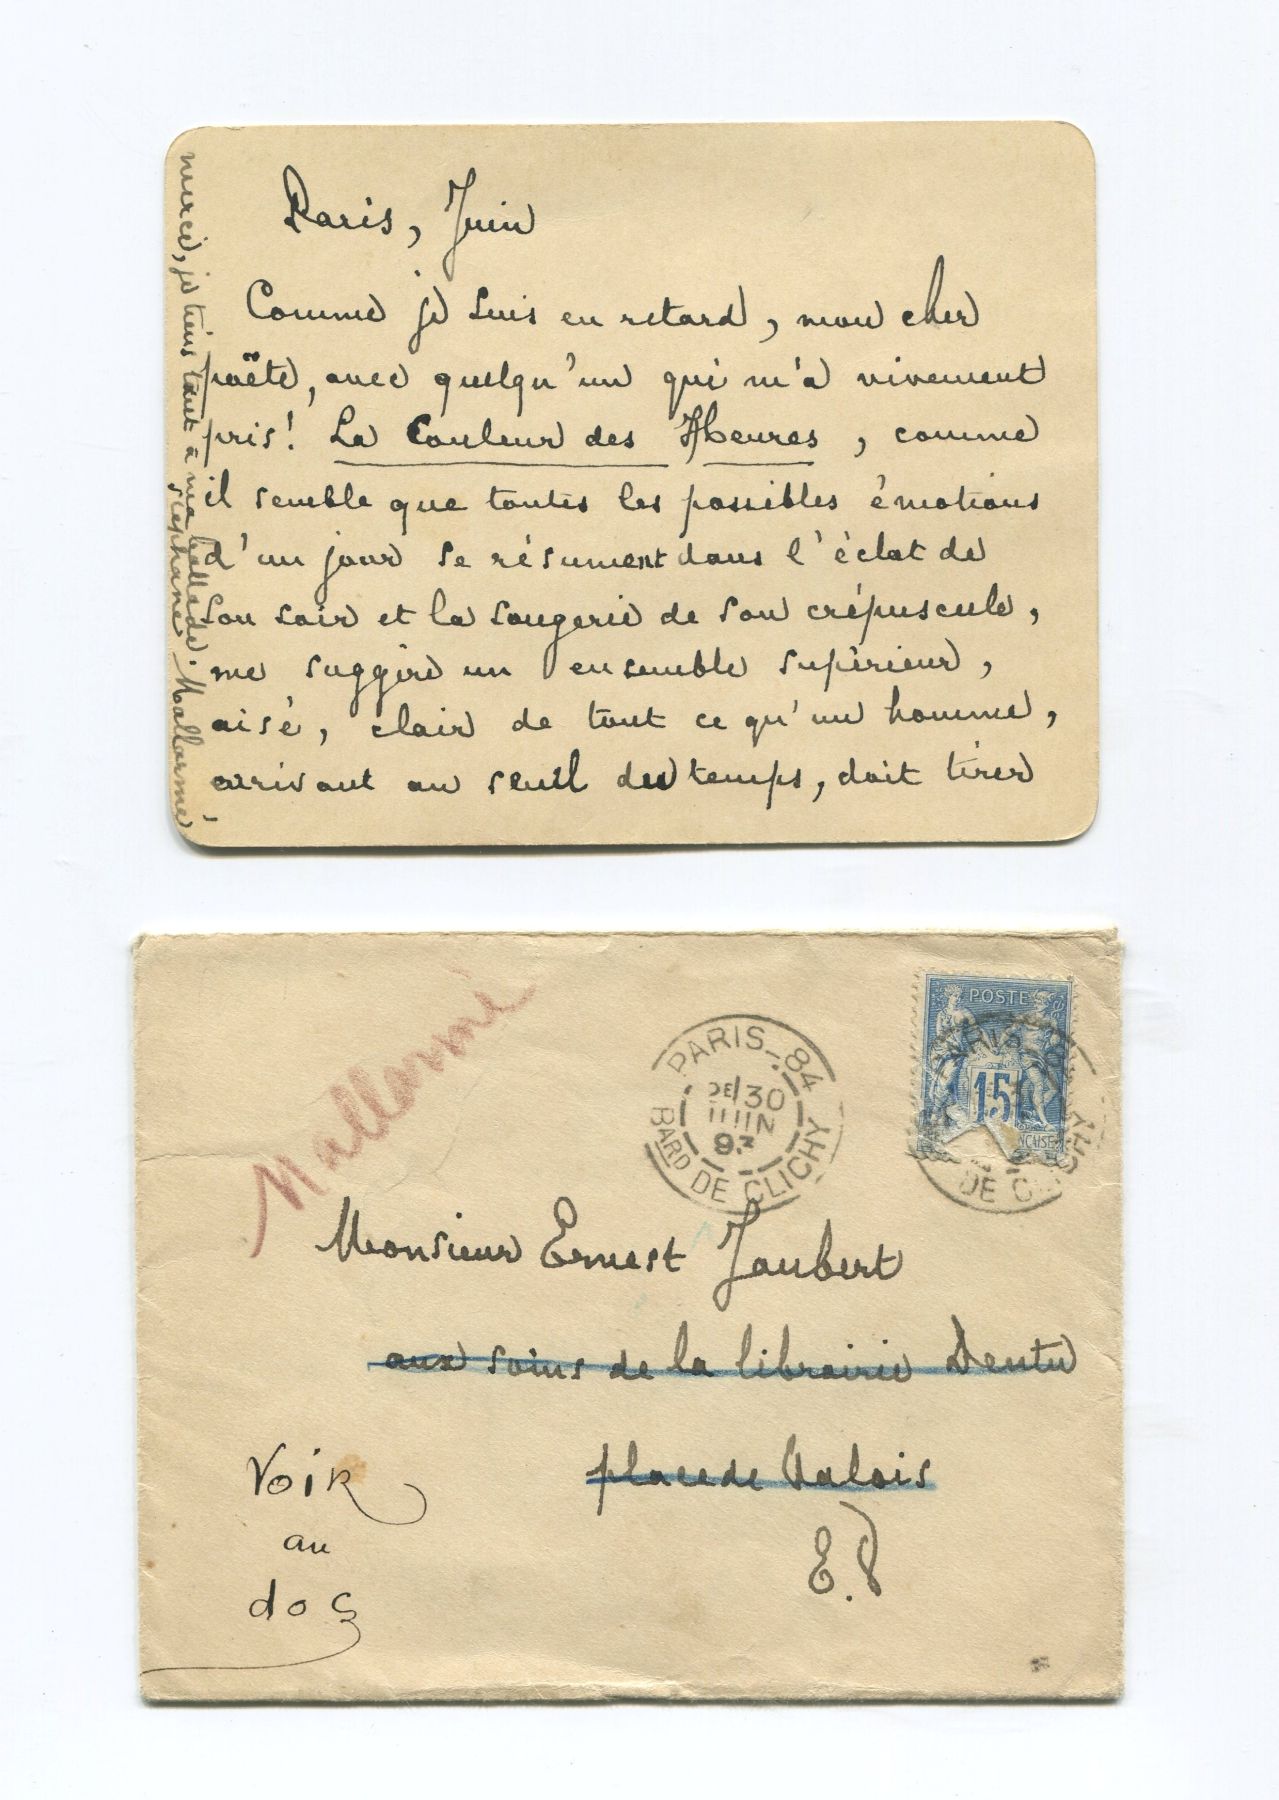 Paris, Juin
Comme je suis en retard, mon cher
poëte, avec quelqu'un qui m'a vivement
pris! La Couleur des Heures, comme
il semble que toutes les possibles émotions
d'un jour se résument dans l'éclat de
son soir et la songerie de son crépuscule,
me suggère un ensemble supérieur,
aisé, clair de tout ce qu'un homme,
arrivant au seuil du temps, doit tirer
merci, je tiens tant à ma ballade.
Stéphane Mallarmé
Mallarmé
PARIS_84
30
JUIN
93
BARD DE CLICHY
POSTE
15
PARIS
DE CLICHY
Monsieur Ernest Jaubert
aux soins de la librairie Dentu
place de Valois
E.V
Voir
au
dos